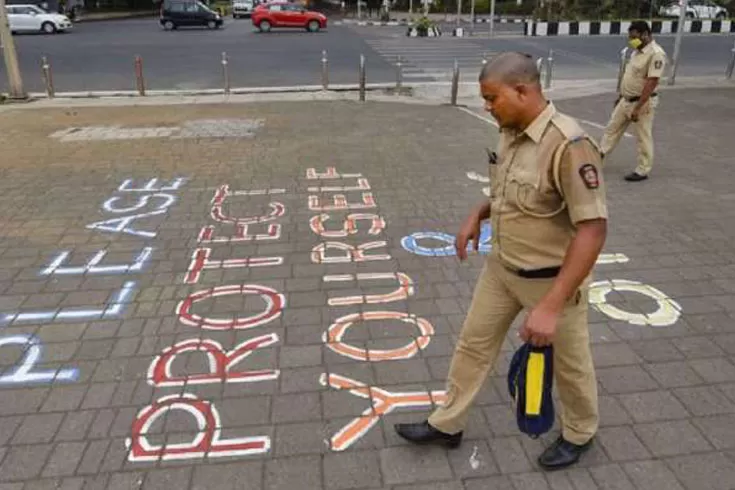 PLEASE
PROTECT
YOURSELF